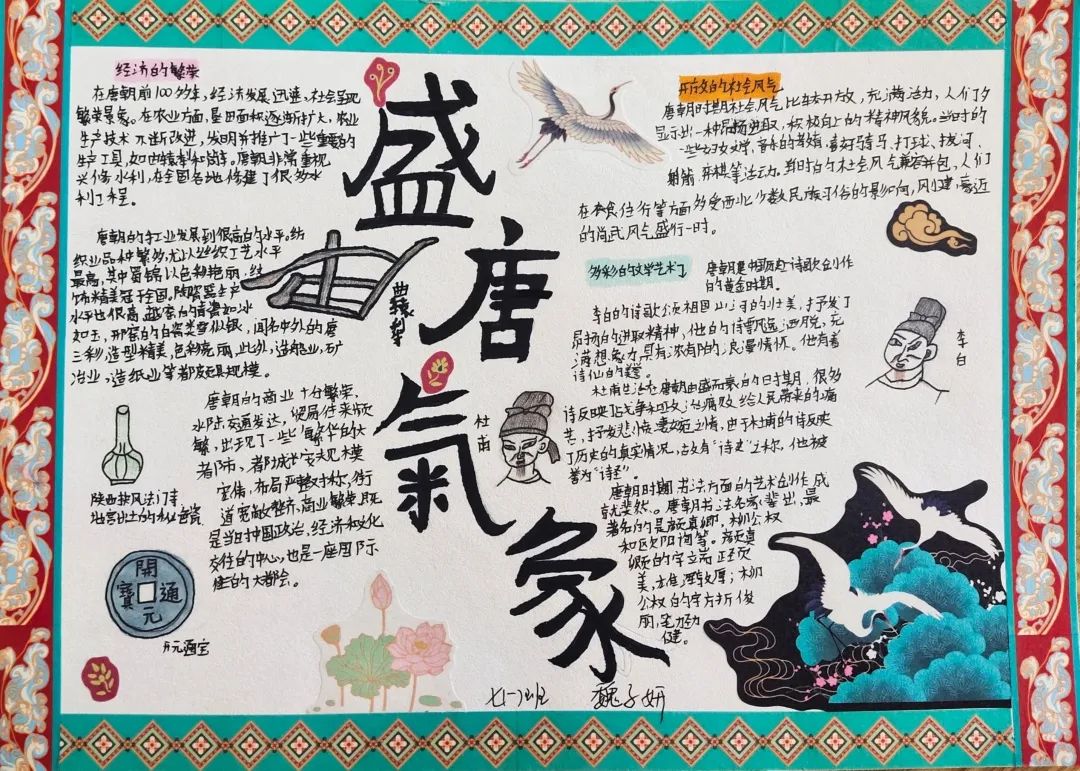 盛唐氣象
经济的繁荣
在唐朝前100多年，经济发展迅速，社会呈现
繁荣景象。在农业方面，垦田面积逐渐扩大，农业
生产技术不断改进，发明并推广了一些重要的
生产工具，如曲辕犁和筒车。唐朝非常重视
兴修水利，在全国各地修建了很多水
利工程。
唐朝的手工业发展到很高的水平。纺
织业品种繁多，尤以丝织工艺水平
最高，其中蜀锦以色彩艳丽，纹
饰精美冠于全国。陶瓷器生产
水平也很高，越窑的青瓷如冰
如玉，邢窑的白瓷类雪似银，闻名中外的唐
三彩，造型精美，色彩亮丽，此外，造船业，矿
冶业，造纸业等都颇具规模。
曲辕犁
唐朝的商业十分繁荣，
水陆交通发达，贸易往来频
繁，出现了一些繁华的大
都市，都城长安规模
宏伟，布局严整对称，街
道宽敞整齐，商业繁荣，既
是当时中国政治，经济和文化
交往的中心，也是一座国际
性的大都会。
陕西扶风法门寺
地宫出土的秘色瓷
開元通寳
开元通宝
开放的社会风气
唐朝时期社会风气比较开放，充满活力，人们多
显示出一种昂扬进取，积极向上的精神风貌。当时的
一些妇女
骑马、打球、拔河、
射箭、弈棋等活动。当时的社会风气兼容并包，人们
在衣食住行等方面多受西北少数民族习俗的影响，风
的尚武风气盛行一时。
多彩的文学艺术
唐朝是中国历史诗歌创作
的黄金时期。
李白的诗歌歌颂祖国山河的壮美，抒发了
昂扬的进取精神，他的诗飘逸洒脱，充
满想象力，具有浓郁的浪漫情怀。他有着
诗仙的美誉
杜甫生活在唐朝由盛而衰的时期，很多
诗反映了战争和政治腐败给人民带来的痛
苦，抒发悲惨
由于杜甫的诗反映
了历史的真实情况，古有“诗史”之称，他被
誉为“诗圣”。
李白
杜甫
唐朝时期书法方面的艺术创作成
就斐然。唐朝书法名家辈出，最
著名的是颜真卿、柳公权
和欧阳询等。颜真
卿的字立端正
美，雄浑敦厚；柳
公权的字方折俊
丽，笔力劲
健。
七(一)班 魏子妍